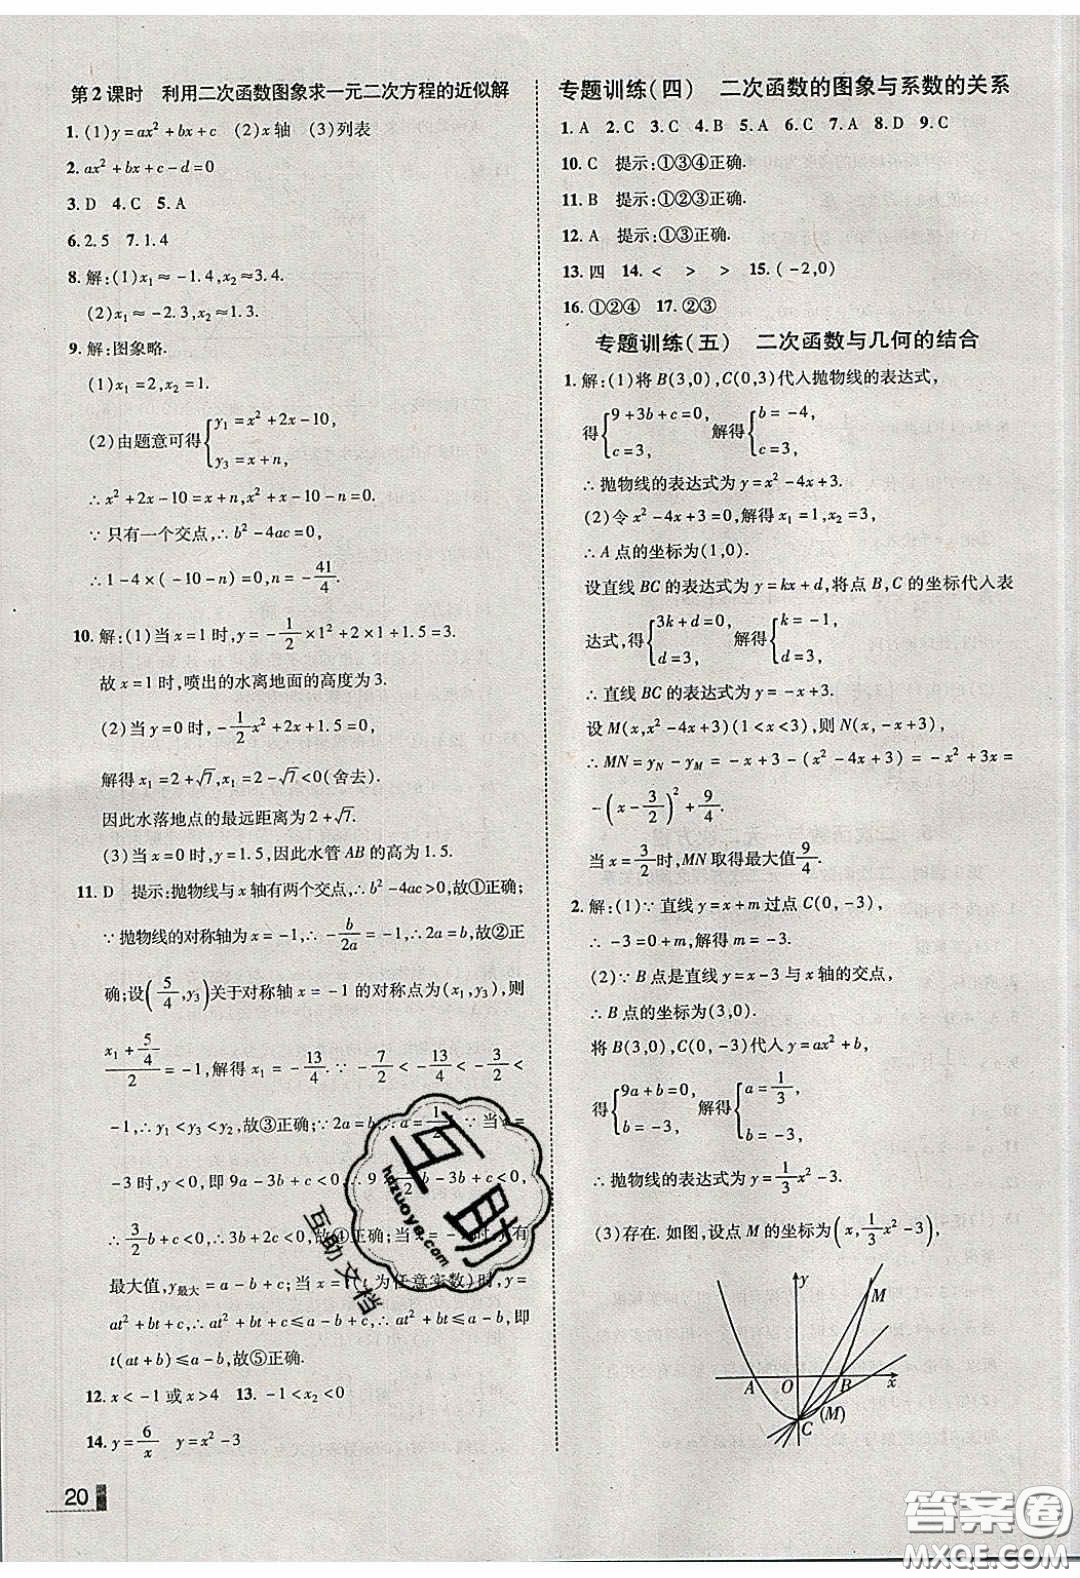 第2课时 利用二次函数图象求一元二次方程的近似解
1.(1)y=ax²+bx+c (2)x轴 (3)列表
2.ax²+bx+c-d=0
3.D 4.C 5.A
6.2.5 7.1.4
8.解:(1)x₁≈-1.4,x₂≈3.4.
(2)x₁≈-2.3,x₂≈1.3.
9.解:图象略.
(1)x₁=2,x₂=1.
(2)由题意可得{y₁=x²+2x-10, y₃=x+n,
∴x²+2x-10=x+n,x²+x-10-n=0.
∵只有一个交点,∴b²-4ac=0,
∴1-4×(-10-n)=0,n=-41/4.
10.解:(1)当x=1时,y=-1/2×1²+2×1+1.5=3.
故x=1时,喷出的水离地面的高度为3.
(2)当y=0时,-1/2x²+2x+1.5=0,
解得x₁=2+√7,x₂=2-√7<0(舍去).
因此水落地点的最远距离为2+√7.
(3)当x=0时,y=1.5,因此水管AB的高为1.5.
11.D 提示:抛物线与x轴有两个交点,∴b²-4ac>0,故①正确;
∵抛物线的对称轴为x=-1,∴-b/2a=-1,∴2a=b,故②正
确;设(5/4,y₃)关于对称轴x=-1的对称点为(x₁,y₃),则
(x₁+5/4)/2=-1,解得x₁=-13/4.∵-7/2<-13/4<-3/2<
-1,∴y₁<y₃<y₂,故③正确;∵2a=b,∴a=1/2 ∵当x=
-3时,y<0,即9a-3b+c<0,∴9×1/2b-3b+c<0,
∴3/2b+c<0,∴3b+2c<0,故④正确;当x=-1时,y有
最大值,y最大=a-b+c;当x=t(t为任意实数)时,y=
at²+bt+c,∴at²+bt+c≤a-b+c,∴at²+bt≤a-b,即
t(at+b)≤a-b,故⑤正确.
12.x<-1或x>4 13.-1<x₂<0
14.y=6/x y=x²-3
20
专题训练(四) 二次函数的图象与系数的关系
1.A 2.C 3.C 4.B 5.A 6.C 7.A 8.D 9.C
10.C 提示:①③④正确.
11.B 提示:①②③正确.
12.A 提示:①③正确.
13.四 14.< > > 15.(-2,0)
16.①②④ 17.②③
专题训练(五) 二次函数与几何的结合
1.解:(1)将B(3,0),C(0,3)代入抛物线的表达式,
得{9+3b+c=0, c=3, 解得{b=-4, c=3,
∴抛物线的表达式为y=x²-4x+3.
(2)令x²-4x+3=0,解得x₁=1,x₂=3,
∴A点的坐标为(1,0).
设直线BC的表达式为y=kx+d,将点B,C的坐标代入表
达式,得{3k+d=0, d=3, 解得{k=-1, d=3,
∴直线BC的表达式为y=-x+3.
设M(x,x²-4x+3)(1<x<3),则N(x,-x+3),
∴MN=y_N-y_M=-x+3-(x²-4x+3)=-x²+3x=
-(x-3/2)²+9/4.
当x=3/2时,MN取得最大值9/4.
2.解:(1)∵直线y=x+m过点C(0,-3),
∴-3=0+m,解得m=-3.
(2)∵B点是直线y=x-3与x轴的交点,
∴B点的坐标为(3,0).
将B(3,0),C(0,-3)代入y=ax²+b,
得{9a+b=0, b=-3, 解得{a=1/3, b=-3,
∴抛物线的表达式为y=1/3x²-3.
(3)存在.如图,设点M的坐标为(x,1/3x²-3),
y
M
A O B x
C (M)
互助
hdzuoye.com
互助文档
答案圈
MXQE.COM